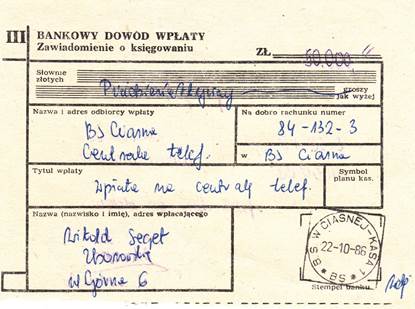 III BANKOWY DOWÓD WPŁATY
Zawiadomienie o księgowaniu
ZŁ 50.000,-
Słownie
złotych
Pięćdziesiąt tysięcy
groszy
jak wyżej
Nazwa i adres odbiorcy wpłaty
BS Ciasna
Centrala telef.
Na dobro rachunku numer
84-132-3
w BS Ciasna
Tytuł wpłaty
Wpłata na centralę telef.
Symbol
planu kas.
Nazwa (nazwisko i imię), adres wpłacającego
Witold Seget
w Górna 6
B S W CIASNEJ-KASA 1
22-10-86
* BS *
Stempel banku